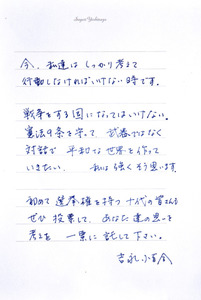 Sayuri Yoshinaga
今、私達は しっかり考えて
行動しなければいけない時です。
戦争をする国になってはいけない。
憲法9条を守って、武器ではなく
対話で 平和な世界を作って
いきたい。 私は強くそう思います。
初めて選挙権を持つ十代の皆さんも
ぜひ投票して、あなた達の思いを
考えを 一票に託して下さい。
吉永小百合